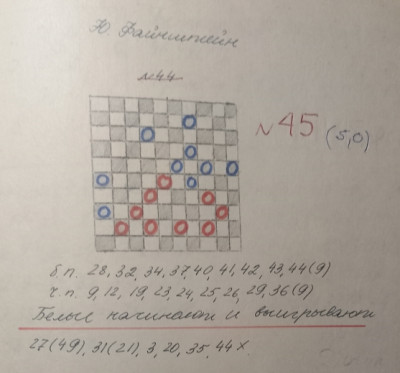 Ю. Файнштейн
№44
№45 (5,0)
б.п. 28, 32, 34, 37, 40, 41, 42, 43, 44 (9)
ч.п. 9, 12, 19, 23, 24, 25, 26, 29, 36 (9)
Белые начинают и выигрывают
27 (49), 31 (21), 3, 20, 35, 44 х.